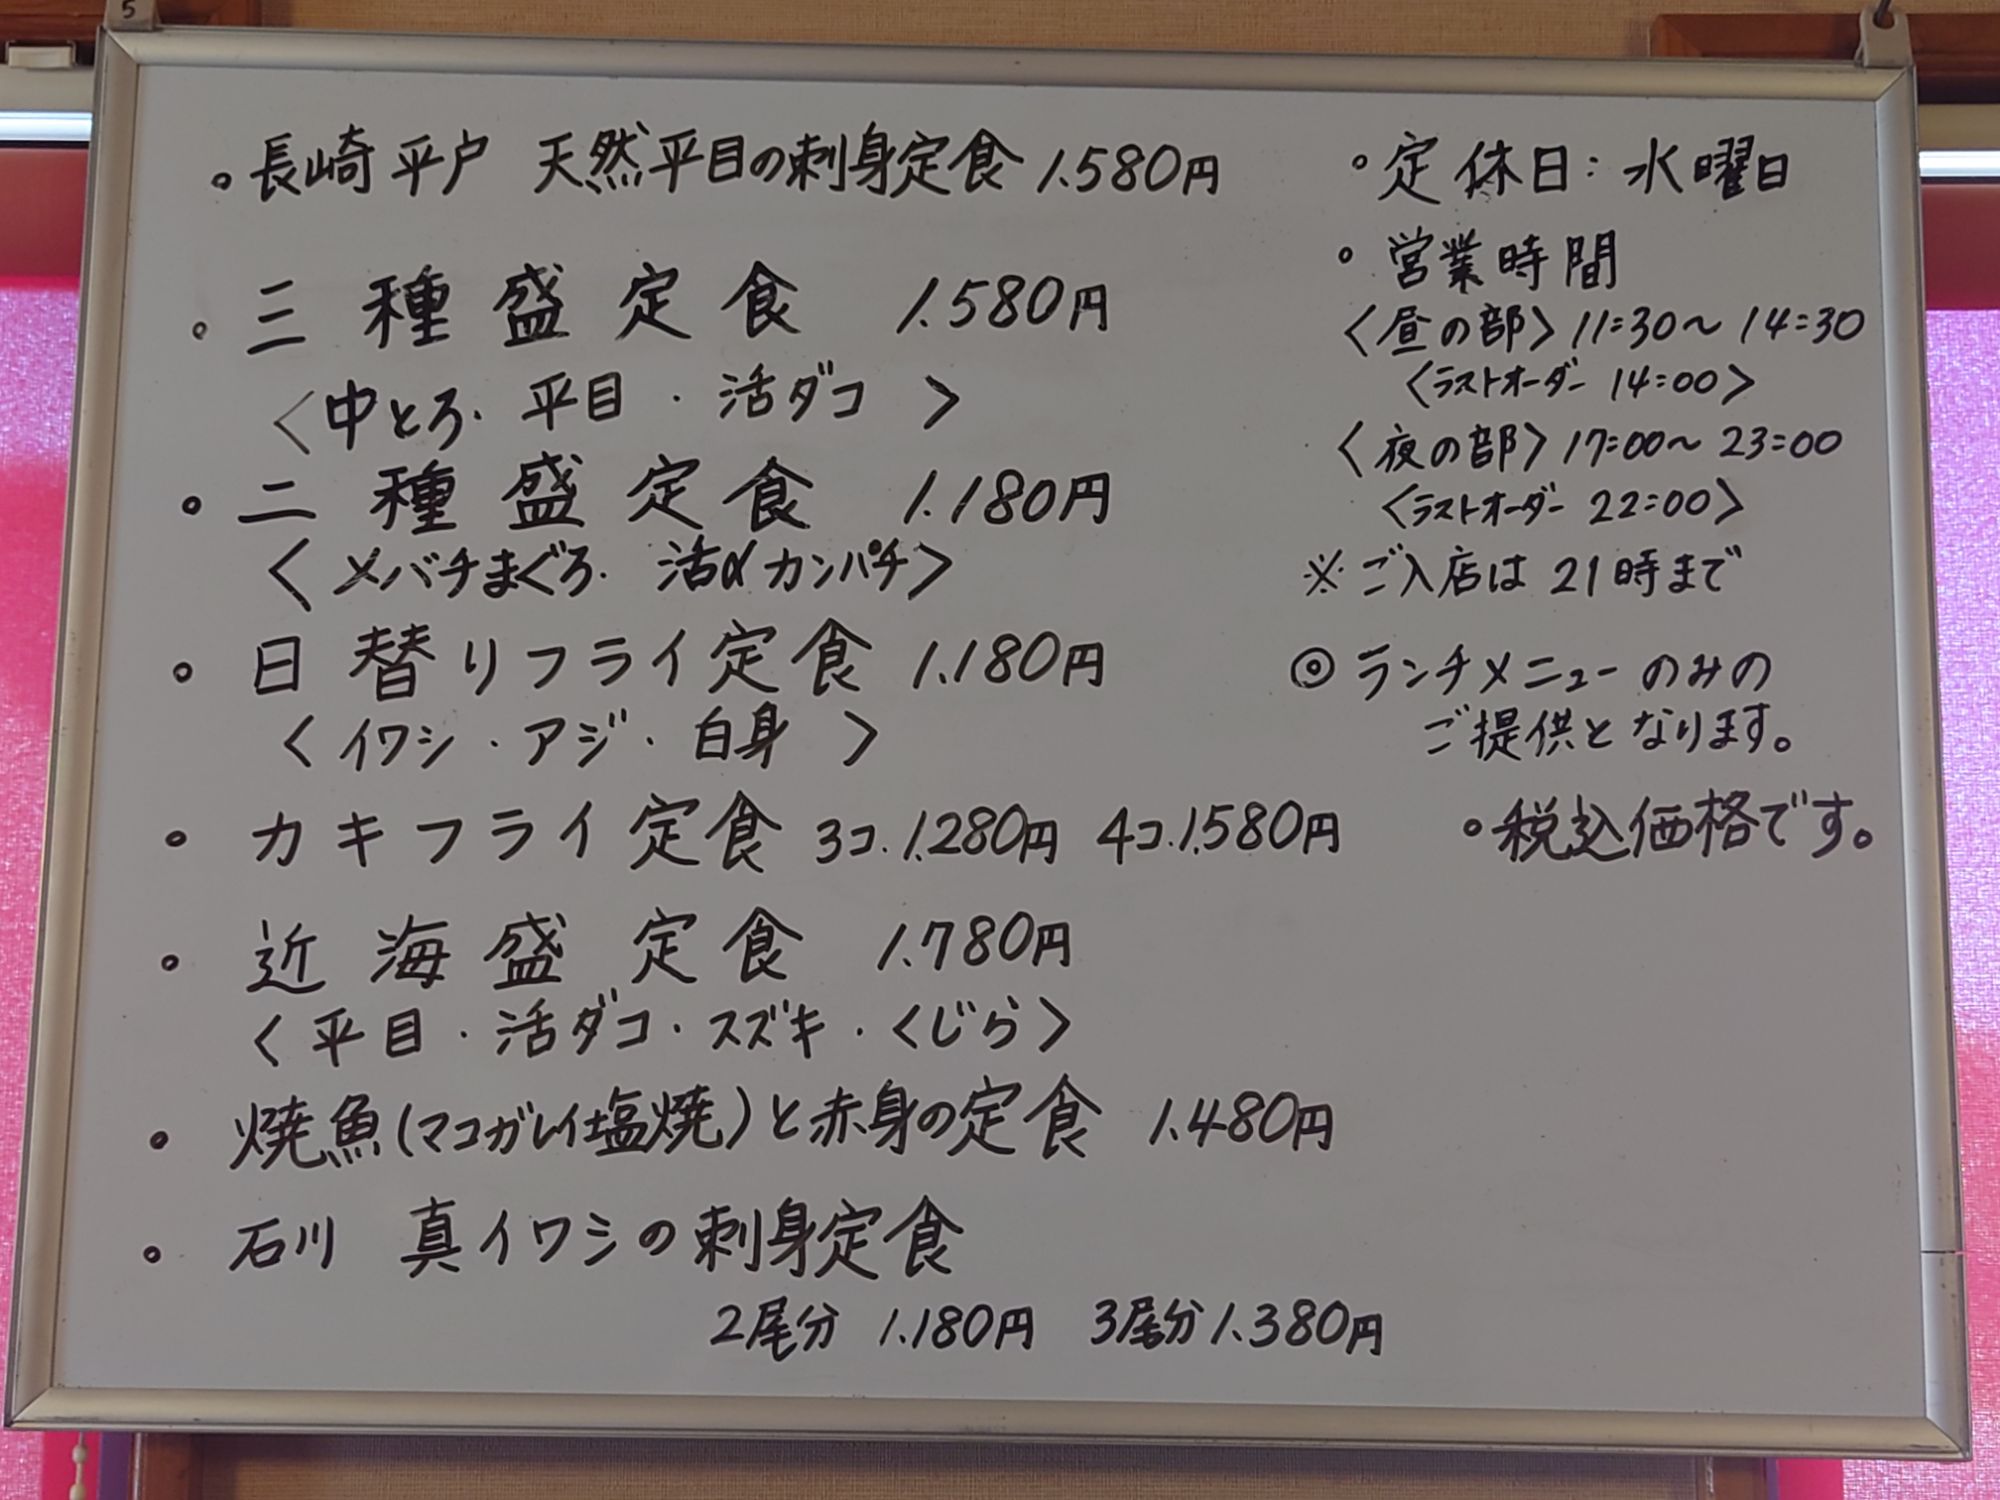 。長崎平戸 天然平目の刺身定食 1.580円
。三種盛定食 1.580円
〈中とろ・平目・活ダコ〉
。二種盛定食 1.180円
〈メバチまぐろ・活〆カンパチ〉
。日替りフライ定食 1.180円
〈イワシ・アジ・白身〉
。カキフライ定食 3コ.1.280円 4コ.1.580円
。近海盛定食 1.780円
〈平目・活ダコ・スズキ・くじら〉
。焼魚(マコガレイ塩焼)と赤身の定食 1.480円
。石川 真イワシの刺身定食
2尾分 1.180円 3尾分 1.380円
。定休日:水曜日
。営業時間
〈昼の部〉11:30〜14:30
〈ラストオーダー 14:00〉
〈夜の部〉17:00〜23:00
〈ラストオーダー 22:00〉
※ご入店は21時まで
◎ランチメニューのみの
ご提供となります。
。税込価格です。
5